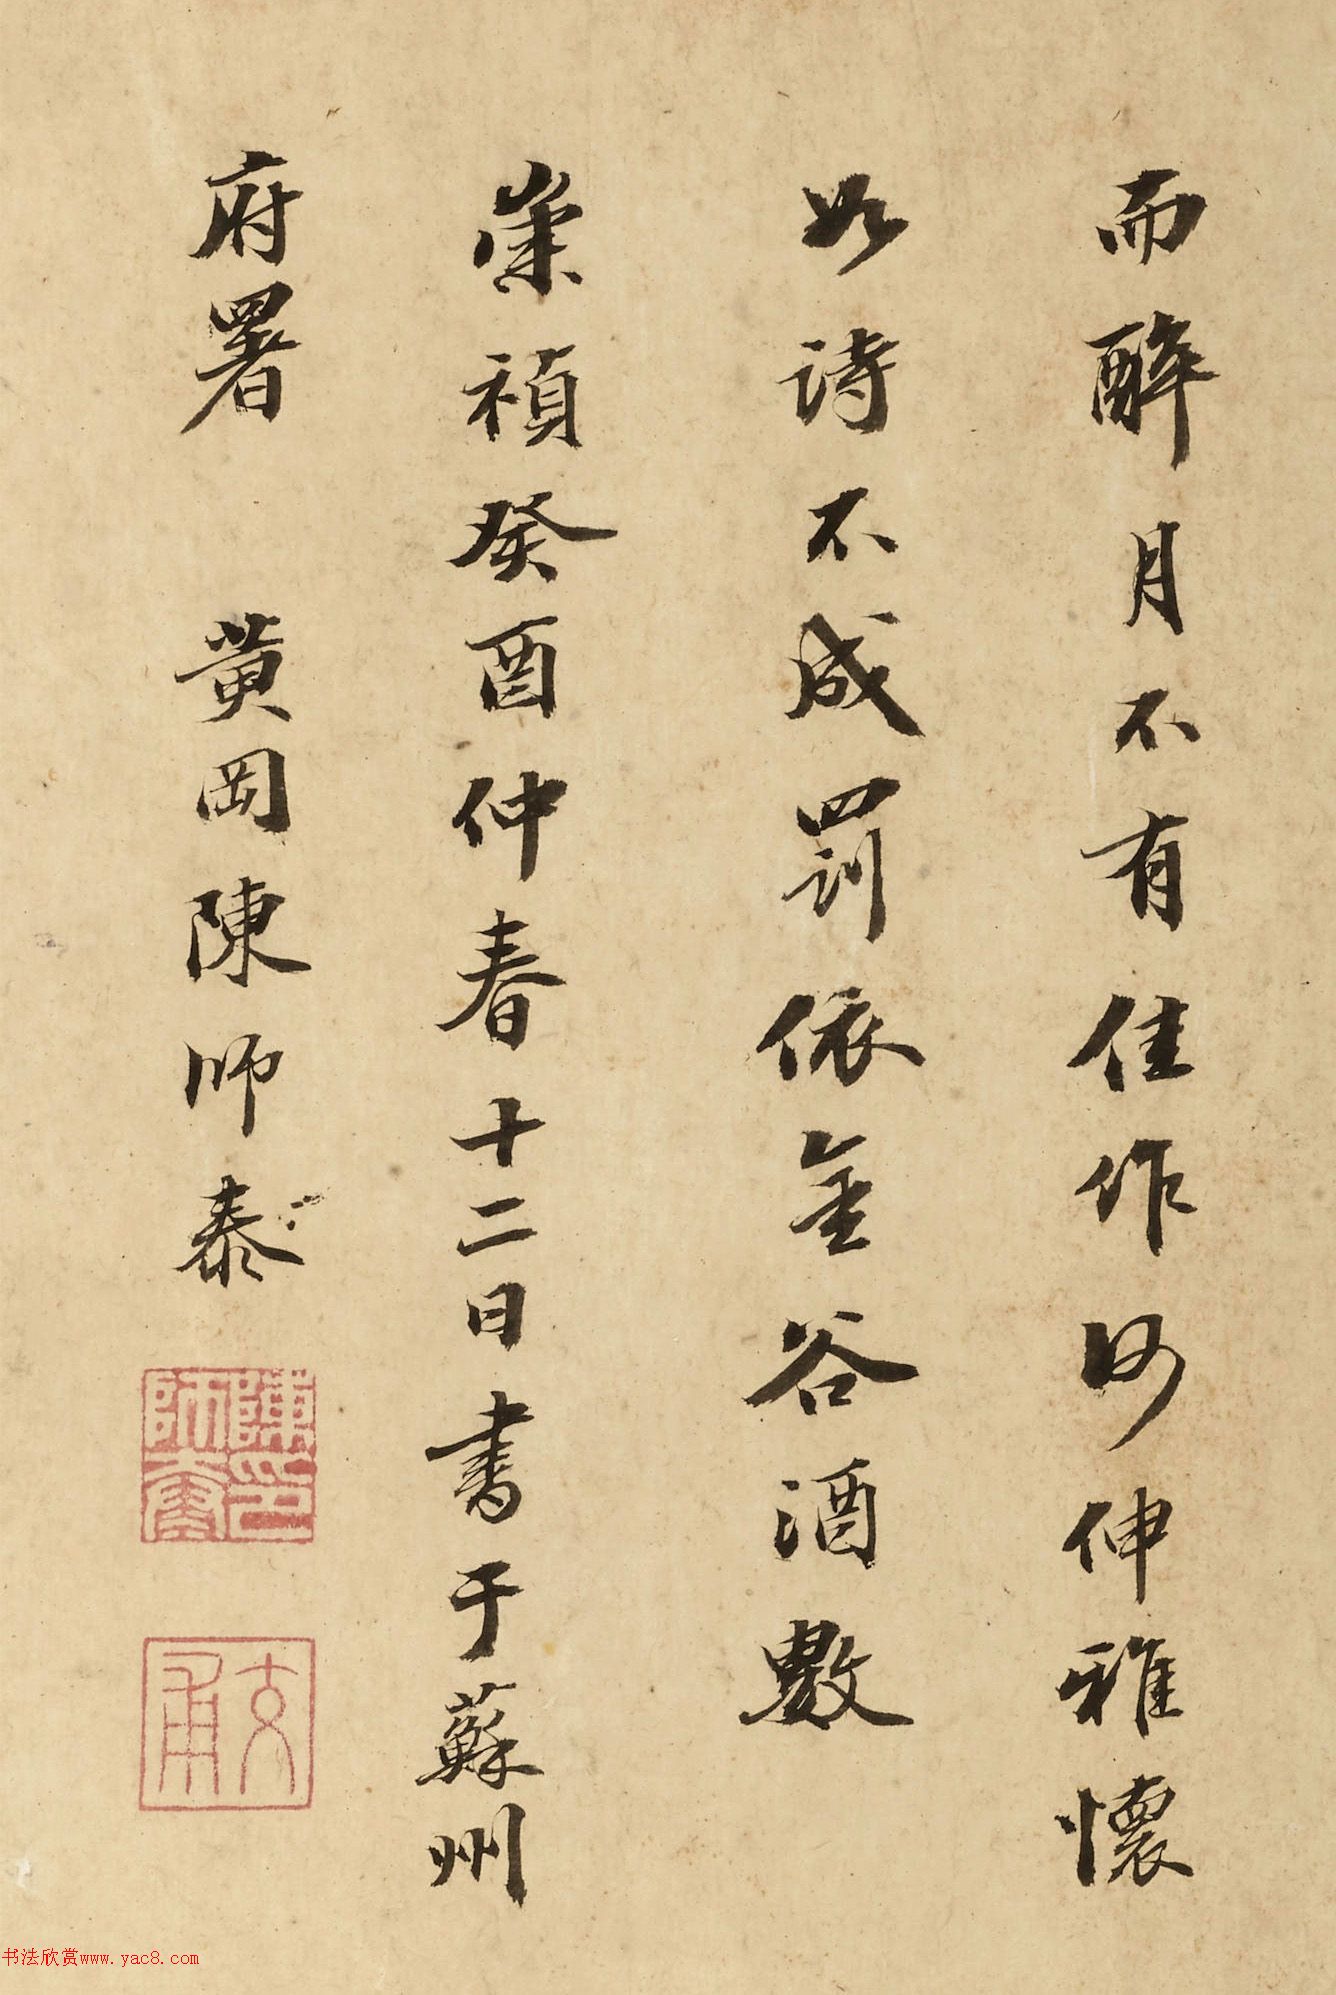 而醉月不有佳作何伸雅懷
如詩不成罰依金谷酒數
崇禎癸酉仲春十二日書于蘇州
府署　黃岡陳師泰
陳印師泰
交甫
书法欣赏www.yac8.com